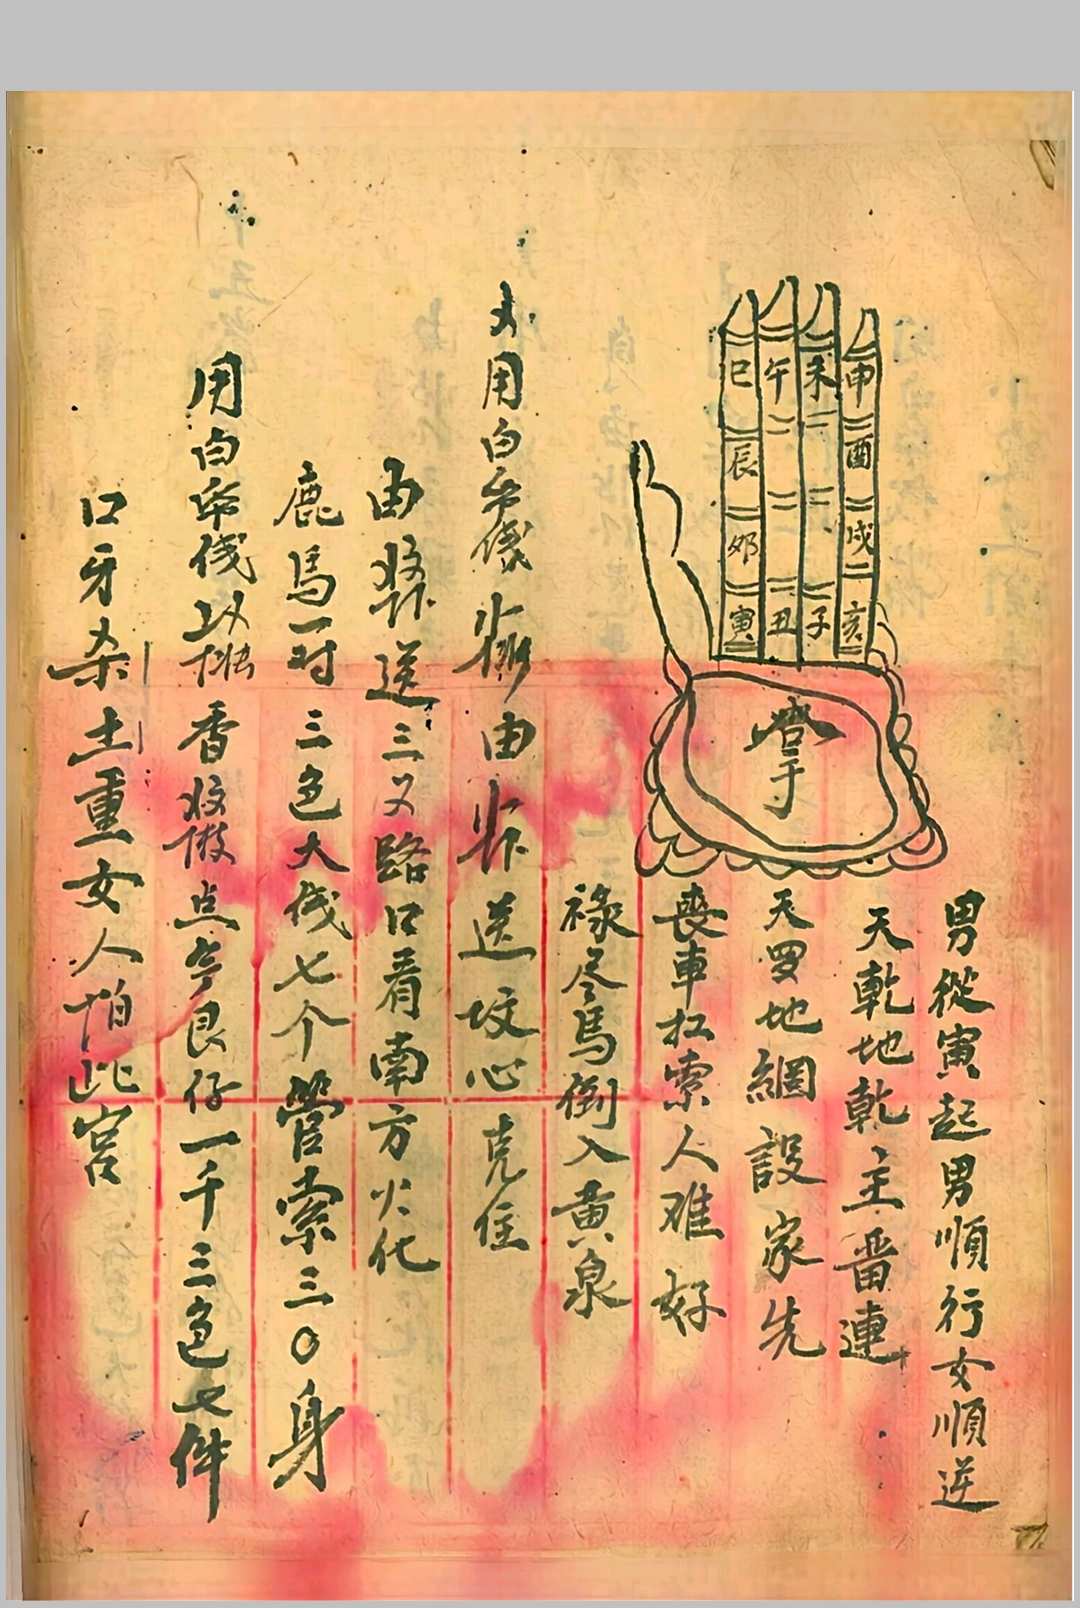 巳 午 未 申
辰 酉
卯 戌
寅 丑 子 亥
掌
男從寅起男順行女順逆
天乾地乾主番連
天罗地網設家先
喪車扛索人难好
祿尽馬倒入黃泉
用白 由 送坟心克住
由 送三叉路口看南方火化
鹿馬一对三色大伐七个 索三〇身
用白 以 香 点 艮仔一千三色七件
口牙杀土重女人怕此宮